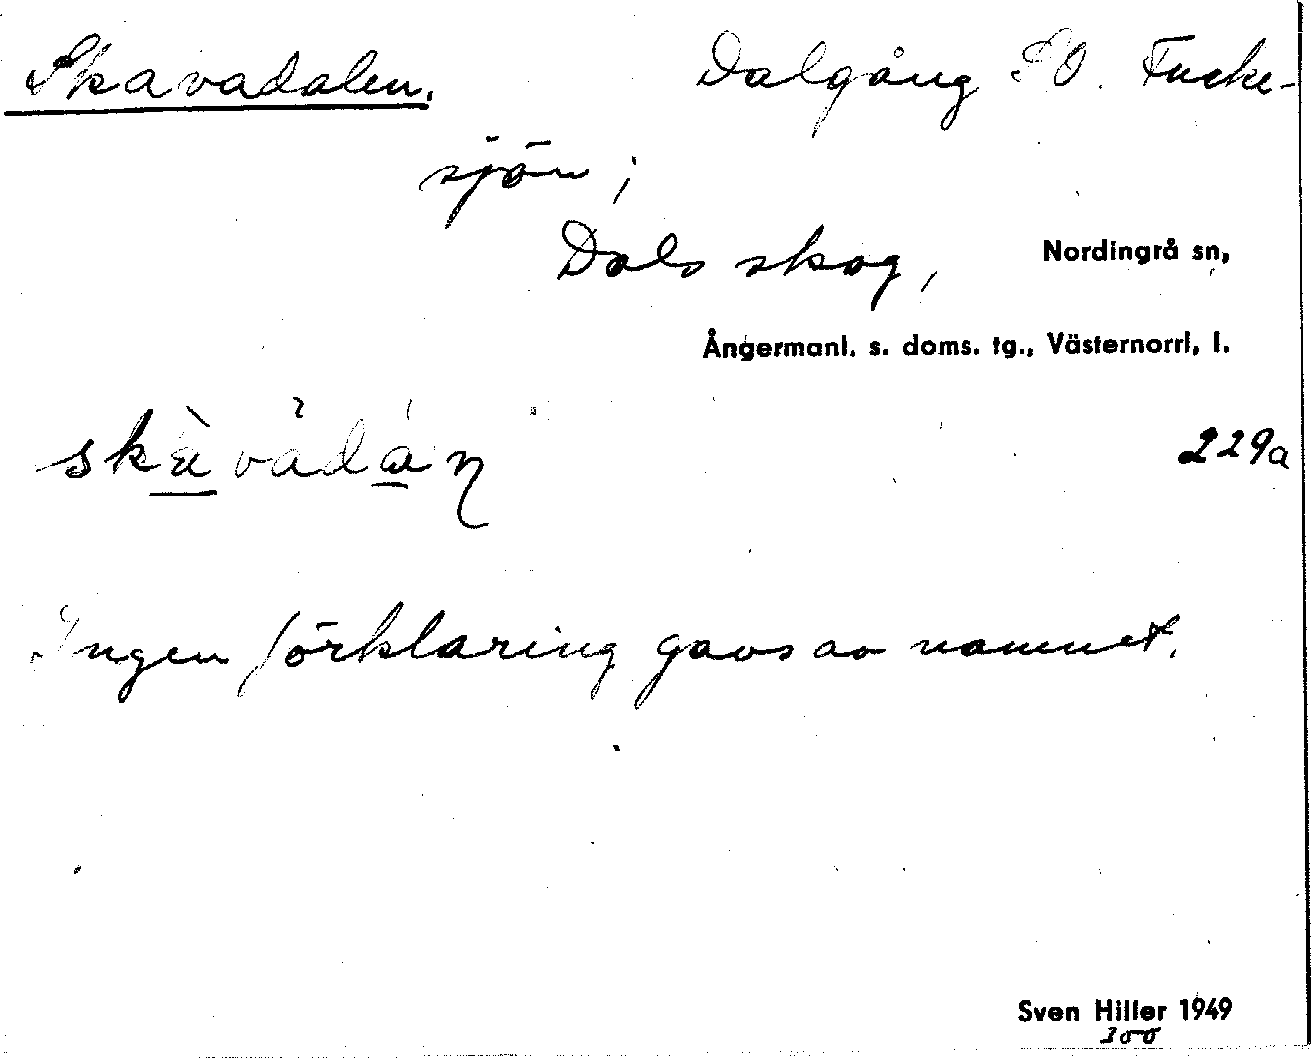 Skavadalen. Dalgång SO. Fucke-
sjön;
Dals skog, Nordingrå sn,
Ångermanl. s. doms. tg., Västernorrl, l.
229a
Ingen förklaring gavs av namnet.
Sven Hiller 1949
300